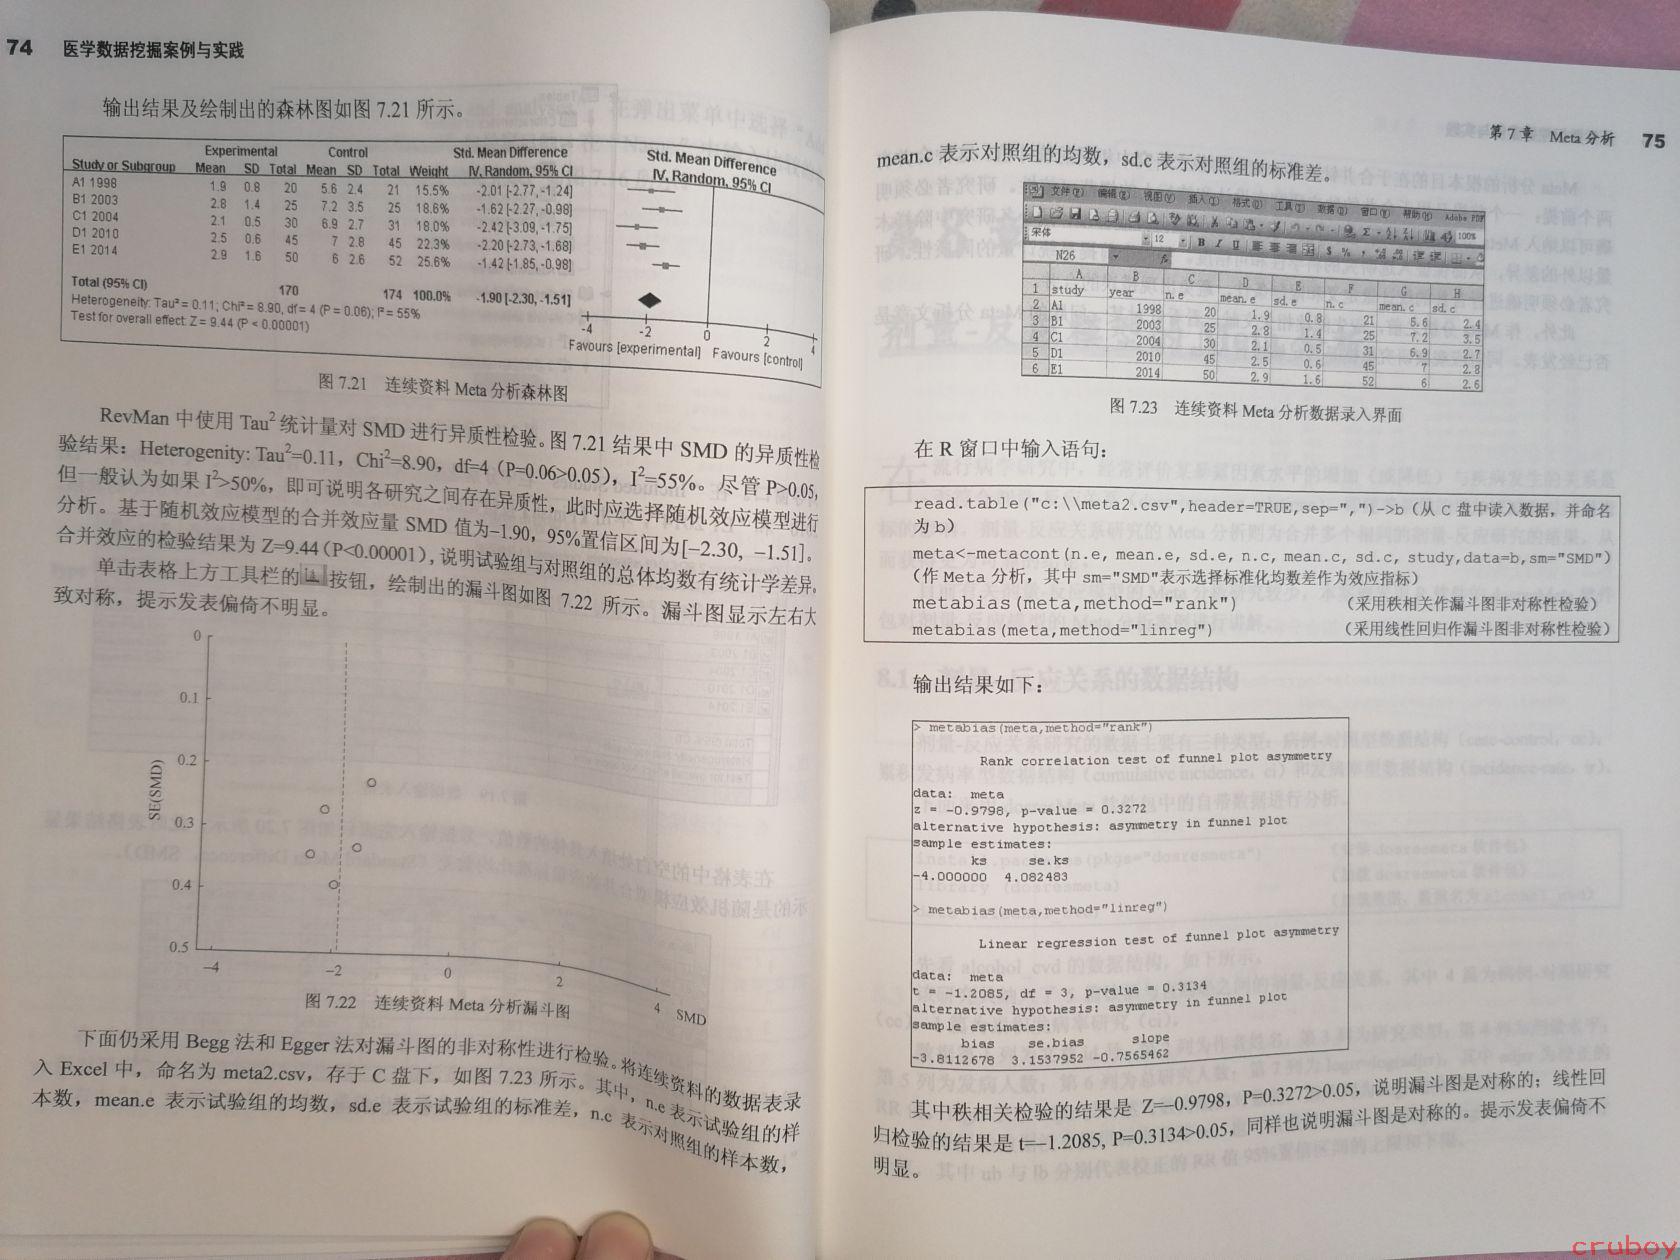 74 医学数据挖掘案例与实践
输出结果及绘制出的森林图如图 7.21 所示。
Experimental Control Std. Mean Difference Std. Mean Difference
Study or Subgroup Mean SD Total Mean SD Total Weight IV, Random, 95% CI IV, Random, 95% CI
A1 1998 1.9 0.8 20 5.6 2.4 21 15.5% -2.01 [-2.77, -1.24]
B1 2003 2.8 1.4 25 7.2 3.5 25 18.6% -1.62 [-2.27, -0.98]
C1 2004 2.1 0.5 30 6.9 2.7 31 18.0% -2.42 [-3.09, -1.75]
D1 2010 2.5 0.6 45 7 2.8 45 22.3% -2.20 [-2.73, -1.68]
E1 2014 2.9 1.6 50 6 2.6 52 25.6% -1.42 [-1.85, -0.98]
Total (95% CI) 170 174 100.0% -1.90 [-2.30, -1.51]
Heterogeneity: Tau² = 0.11; Chi² = 8.90, df = 4 (P = 0.06); I² = 55%
Test for overall effect: Z = 9.44 (P < 0.00001)
-4 -2 0 2 4
Favours [experimental] Favours [control]
图 7.21 连续资料 Meta 分析森林图
RevMan 中使用 Tau² 统计量对 SMD 进行异质性检验。图 7.21 结果中 SMD 的异质性检
验结果：Heterogenity: Tau²=0.11，Chi²=8.90，df=4（P=0.06>0.05），I²=55%。尽管 P>0.05，
但一般认为如果 I²>50%，即可说明各研究之间存在异质性，此时应选择随机效应模型进行
分析。基于随机效应模型的合并效应量 SMD 值为–1.90，95%置信区间为[–2.30，–1.51]。
合并效应的检验结果为 Z=9.44（P<0.00001），说明试验组与对照组的总体均数有统计学差异。
单击表格上方工具栏的按钮，绘制出的漏斗图如图 7.22 所示。漏斗图显示左右大
致对称，提示发表偏倚不明显。
0
0.1
0.2
SE(SMD)
0.3
0.4
0.5
–4 –2 0 2 4 SMD
图 7.22 连续资料 Meta 分析漏斗图
下面仍采用 Begg 法和 Egger 法对漏斗图的非对称性进行检验。将连续资料的数据表录
入 Excel 中，命名为 meta2.csv，存于 C 盘下，如图 7.23 所示。其中，n.e 表示试验组的样
本数，mean.e 表示试验组的均数，sd.e 表示试验组的标准差，n.c 表示对照组的样本数，
第 7 章 Meta 分析 75
mean.c 表示对照组的均数，sd.c 表示对照组的标准差。
文件(F) 编辑(E) 视图(V) 插入(I) 格式(O) 工具(T) 数据(D) 窗口(W) 帮助(H) Adobe PDF
100%
宋体 12 B I U
N26 fx
A B C D E F G H
1 study year n.e mean.e sd.e n.c mean.c sd.c
2 A1 1998 20 1.9 0.8 21 5.6 2.4
3 B1 2003 25 2.8 1.4 25 7.2 3.5
4 C1 2004 30 2.1 0.5 31 6.9 2.7
5 D1 2010 45 2.5 0.6 45 7 2.8
6 E1 2014 50 2.9 1.6 52 6 2.6
图 7.23 连续资料 Meta 分析数据录入界面
在 R 窗口中输入语句：
read.table("c:\\meta2.csv",header=TRUE,sep=",")->b（从 C 盘中读入数据，并命名
为 b）
meta<-metacont(n.e, mean.e, sd.e, n.c, mean.c, sd.c, study,data=b,sm="SMD")
（作 Meta 分析，其中 sm="SMD"表示选择标准化均数差作为效应指标）
metabias(meta,method="rank") （采用秩相关作漏斗图非对称性检验）
metabias(meta,method="linreg") （采用线性回归作漏斗图非对称性检验）
输出结果如下：
> metabias(meta,method="rank")
Rank correlation test of funnel plot asymmetry
data: meta
z = -0.9798, p-value = 0.3272
alternative hypothesis: asymmetry in funnel plot
sample estimates:
ks se.ks
-4.000000 4.082483
> metabias(meta,method="linreg")
Linear regression test of funnel plot asymmetry
data: meta
t = -1.2085, df = 3, p-value = 0.3134
alternative hypothesis: asymmetry in funnel plot
sample estimates:
bias se.bias slope
-3.8112678 3.1537952 -0.7565462
其中秩相关检验的结果是 Z=–0.9798，P=0.3272>0.05，说明漏斗图是对称的；线性回
归检验的结果是 t=–1.2085, P=0.3134>0.05，同样也说明漏斗图是对称的。提示发表偏倚不
明显。
cruboy